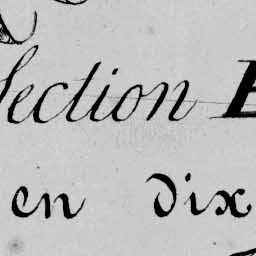 Section
en dix